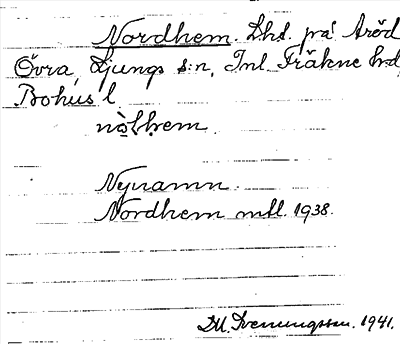 Nordhem. Lht. på Aröd
Övra, Ljungs s:n, Inl. Fräkne hd,
Bohus l
nɷ̀ḷhem
Nynamn.
Nordhem mtl. 1938.
D.U. Svenungsson. 1941.